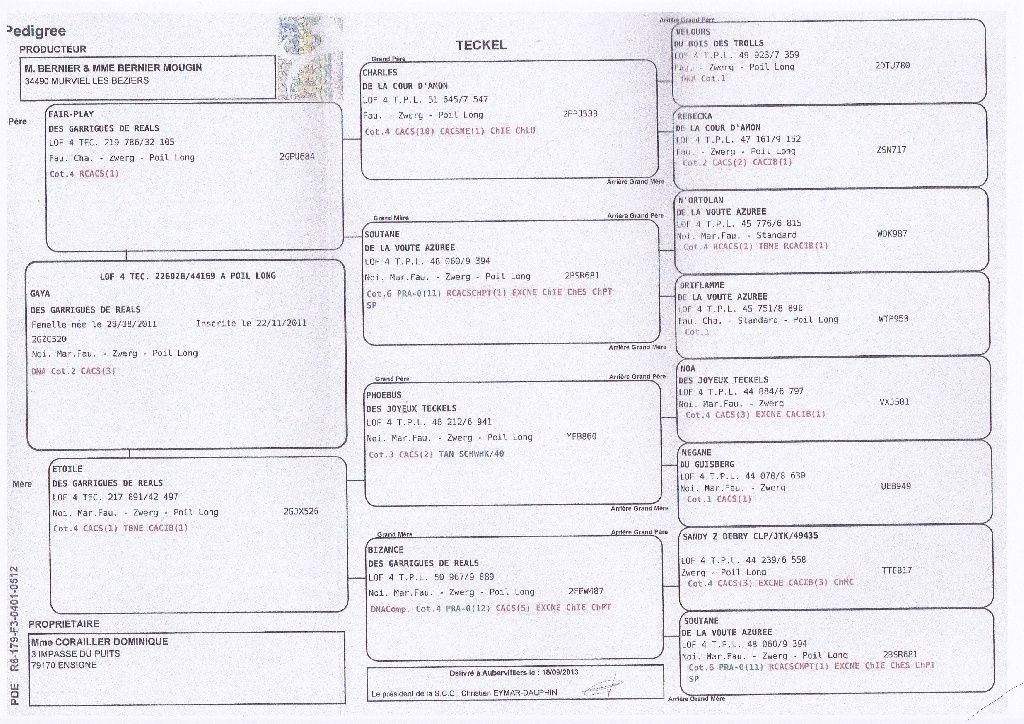 Pedigree
PRODUCTEUR
M. BERNIER & MME BERNIER MOUGIN
34490 MURVIEL LES BEZIERS
TECKEL
Père
FAIR-PLAY
DES GARRIGUES DE REALS
LOF 4 TEC. 219 786/32 105
Fau. Cha. - Zwerg - Poil Long
Cot.4 RCACS(1)
LOF 4 TEC. 226028/44169 A POIL LONG
GAYA
DES GARRIGUES DE REALS
Femelle née le 28/08/2011 Inscrite le 22/11/2011
2GZC520
Noi. Mar.Fau. - Zwerg - Poil Long
DNA Cot.2 CACS(3)
Mère
ETOILE
DES GARRIGUES DE REALS
LOF 4 TEC. 217 891/42 497
Noi. Mar.Fau. - Zwerg - Poil Long 2GJX526
Cot.4 CACS(1) TBNE CACIB(1)
PROPRIETAIRE
Mme CORAILLER DOMINIQUE
3 IMPASSE DU PUITS
79170 ENSIGNE
PDE R6-179-F3-0401-0512
Grand Père
CHARLES
DE LA COUR D'AMON
LOF 4 T.P.L. 51 545/7 547
Fau. - Zwerg - Poil Long
Cot.4 CACS(10) CACSNE(1) ChIE ChLU
Grand Mère
SOUTANE
DE LA VOUTE AZUREE
LOF 4 T.P.L. 48 060/9 394
Noi. Mar.Fau. - Zwerg - Poil Long 2BSR681
Cot.6 PRA-0(11) RCACSCHPT(1) EXCNE ChIE ChES ChPT
SP
Grand Père
PHOEBUS
DES JOYEUX TECKELS
LOF 4 T.P.L. 46 212/6 941
Noi. Mar.Fau. - Zwerg - Poil Long YFB860
Cot.3 CACS(2) TAN SCHWHK/40
Grand Mère
BIZANCE
DES GARRIGUES DE REALS
LOF 4 T.P.L. 50 967/9 889
Noi. Mar.Fau. - Zwerg - Poil Long 2FEW487
DNAComp. Cot.4 PRA-0(12) CACS(5) EXCNE ChIE ChPT
Délivré à Aubervilliers le : 18/09/2013
Le président de la S.C.C. Christian EYMAR-DAUPHIN
Arrière Grand Père
VELOURS
DU BOIS DES TROLLS
LOF 4 T.P.L. 49 023/7 359
Fau. - Zwerg - Poil Long 2DTU780
Cot.1
Arrière Grand Mère
REBECKA
DE LA COUR D'AMON
LOF 4 T.P.L. 47 161/9 152
Fau. - Zwerg - Poil Long ZSN717
Cot.2 CACS(2) CACIB(1)
Arrière Grand Père
N'ORTOLAN
DE LA VOUTE AZUREE
LOF 4 T.P.L. 45 776/6 815
Noi. Mar.Fau. - Standard WDK987
Cot.4 RCACS(1) TBNE RCACIB(1)
Arrière Grand Mère
ORIFLAMME
DE LA VOUTE AZUREE
LOF 4 T.P.L. 45 751/8 898
Fau. Cha. - Standard - Poil Long WTF953
Cot.1
Arrière Grand Père
NOA
DES JOYEUX TECKELS
LOF 4 T.P.L. 44 884/6 797
Noi. Mar.Fau. - Zwerg VXJ501
Cot.4 CACS(3) EXCNE CACIB(1)
Arrière Grand Mère
NEGANE
DU GUISBERG
LOF 4 T.P.L. 44 070/8 630
Noi. Mar.Fau. - Zwerg UEB949
Cot.1 CACS(1)
Arrière Grand Père
SANDY Z DEBRY CLP/JTK/49435
LOF 4 T.P.L. 44 239/6 558
Zwerg - Poil Long TTE817
Cot.4 CACS(3) EXCNE CACIB(3) ChNC
Arrière Grand Mère
SOUTANE
DE LA VOUTE AZUREE
LOF 4 T.P.L. 48 060/9 394
Noi. Mar.Fau. - Zwerg - Poil Long 2BSR681
Cot.6 PRA-0(11) RCACSCHPT(1) EXCNE ChIE ChES ChPT
SP